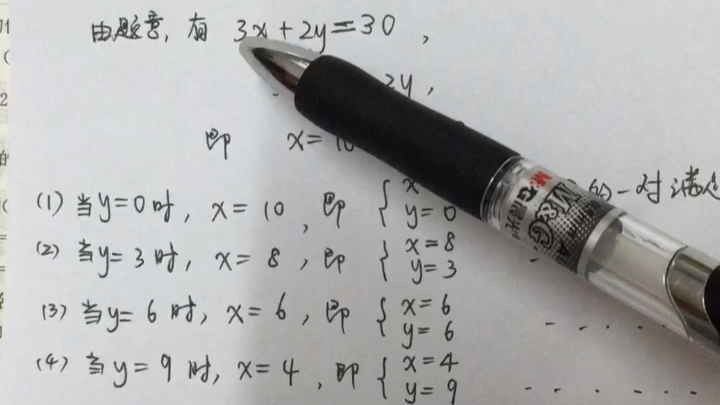 由题意,有 3x+2y=30,
2y,
即 x=10
(1) 当y=0时, x=10, 即 { x y=0 的一对满足
(2) 当y=3时, x=8, 即 { x=8 y=3
(3) 当y=6时, x=6, 即 { x=6 y=6 - . . . . .
(4) 当y=9时, x=4, 即 { x=4 y=9 - . . . . .
M&G